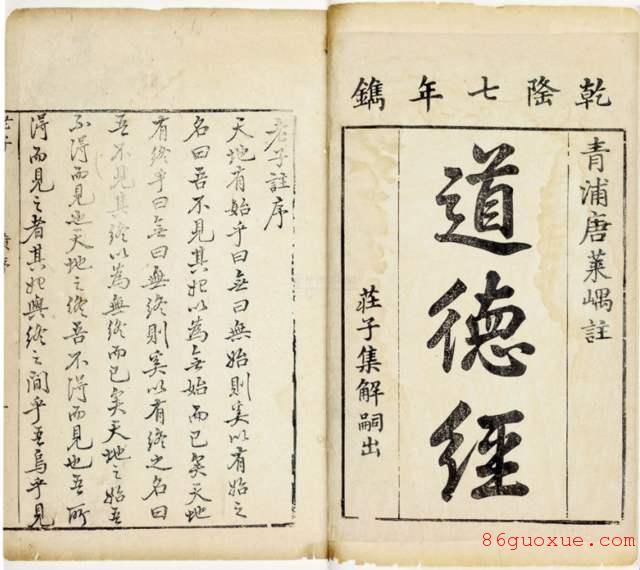 乾隆七年鐫
青浦唐萊嵎註
道德經
莊子集解嗣出
老子註序
天地有始乎曰无曰無始則奚以有始之
名曰吾不見其始以為无始而已矣天地
有終乎曰无曰無終則奚以有終之名曰
吾不見其終以為無終而已矣天地之始吾
不得而見也天地之終吾不得而見也吾所
得而見之者其始與終之間乎吾烏乎見
86guoxue.com